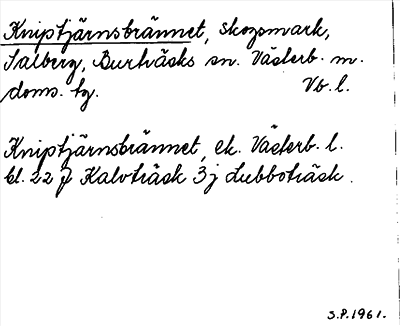 Kniptjärnsbrännet, skogsmark,
Salberg, Burträsks sn. Västerb. m.
doms. tg. Vb. l.
Kniptjärnsbrännet, ek. Västerb. l.
bl. 22 f Kalvträsk 3j Lubboträsk.
S.P. 1961.